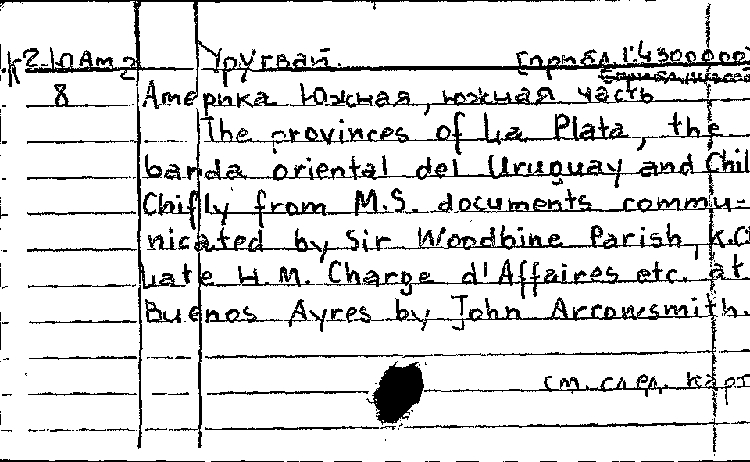 К2-ЮАм 2 Уругвай. [Прибл. 1:4300000]
8 Америка Южная, южная часть
The provinces of La Plata, the
banda oriental del Uruguay and Chil
Chifly from M.S. documents commu-
nicated by Sir Woodbine Parish, K.C
Late H.M. Charge d'Affaires etc. at
Buenos Ayres by John Arrowsmith.
см. след. карт